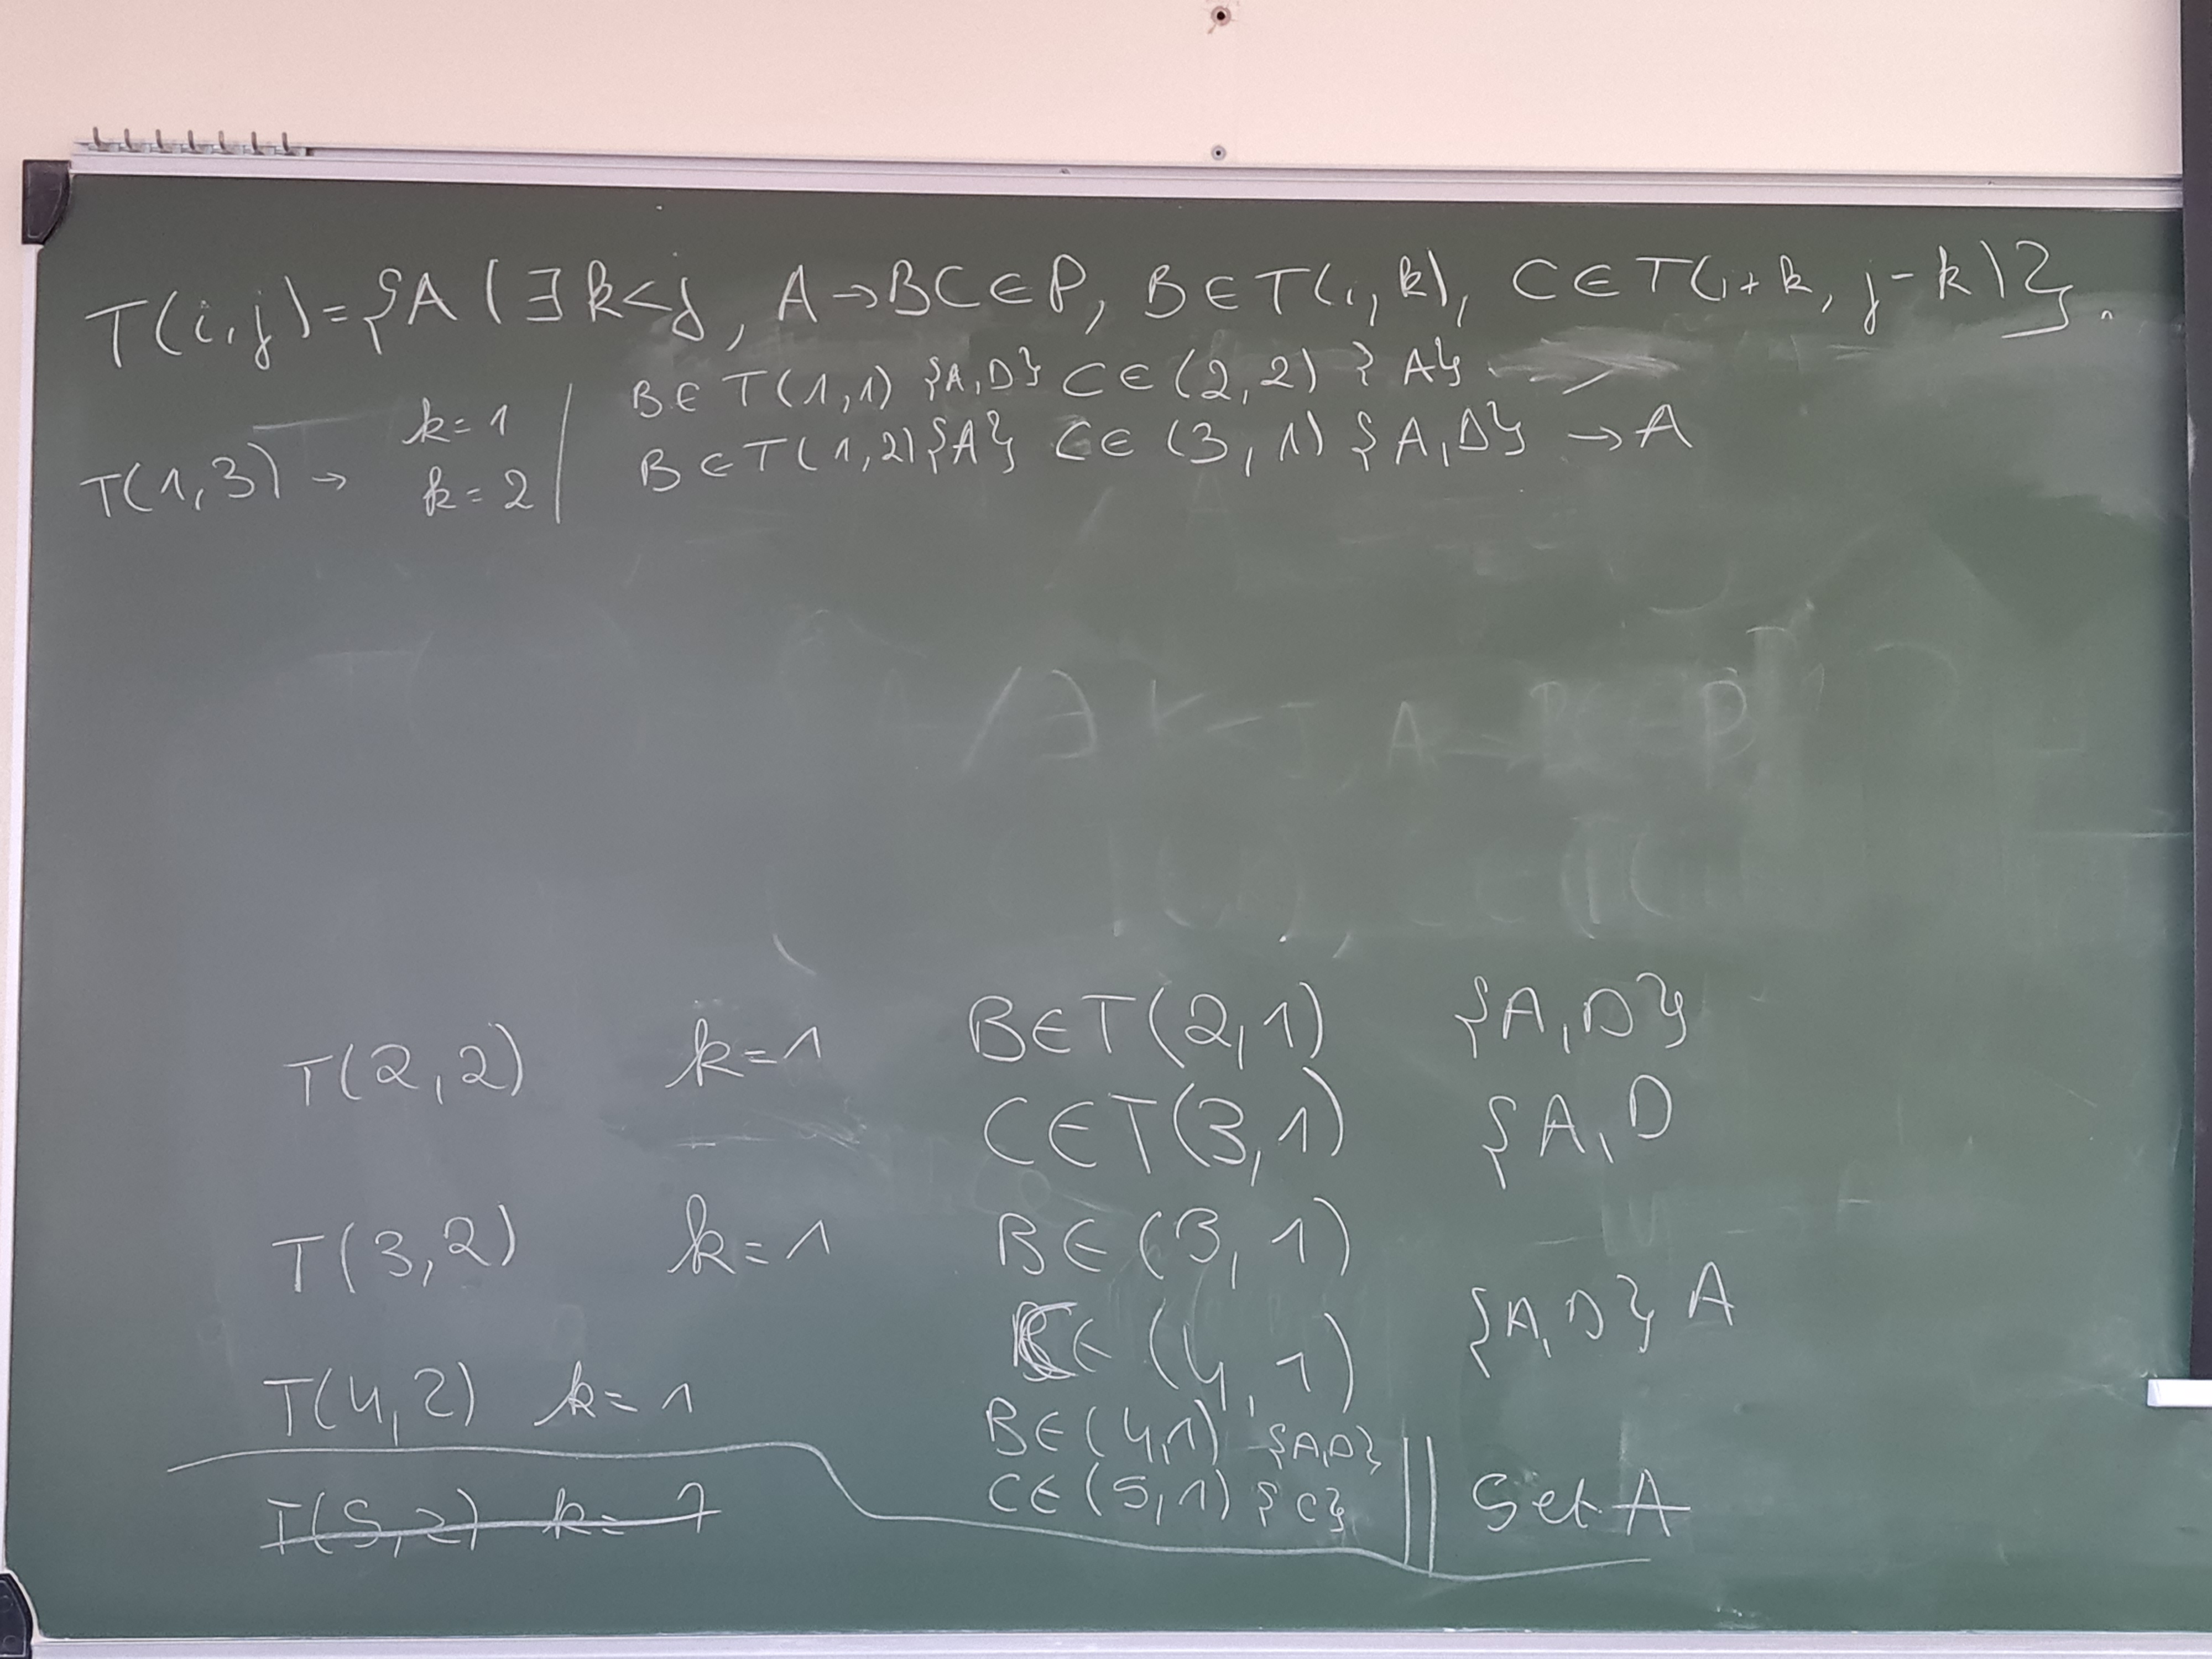 T(i,j)={A | ∃k<j, A→BC∈P, B∈T(i,k), C∈T(i+k, j-k)}.
k=1 | B∈T(1,1) {A,D} C∈(2,2) {A}
T(1,3) → k=2 | B∈T(1,2){A} C∈(3,1) {A,D} → A
T(2,2) k=1 B∈T(2,1) {A,D}
C∈T(3,1) {A,D
T(3,2) k=1 B∈(3,1)
C∈(4,1) {A,D} A
T(4,2) k=1 B∈(4,1) {A,D}
C∈(5,1) {C} || Set A
T(5,2) k=1